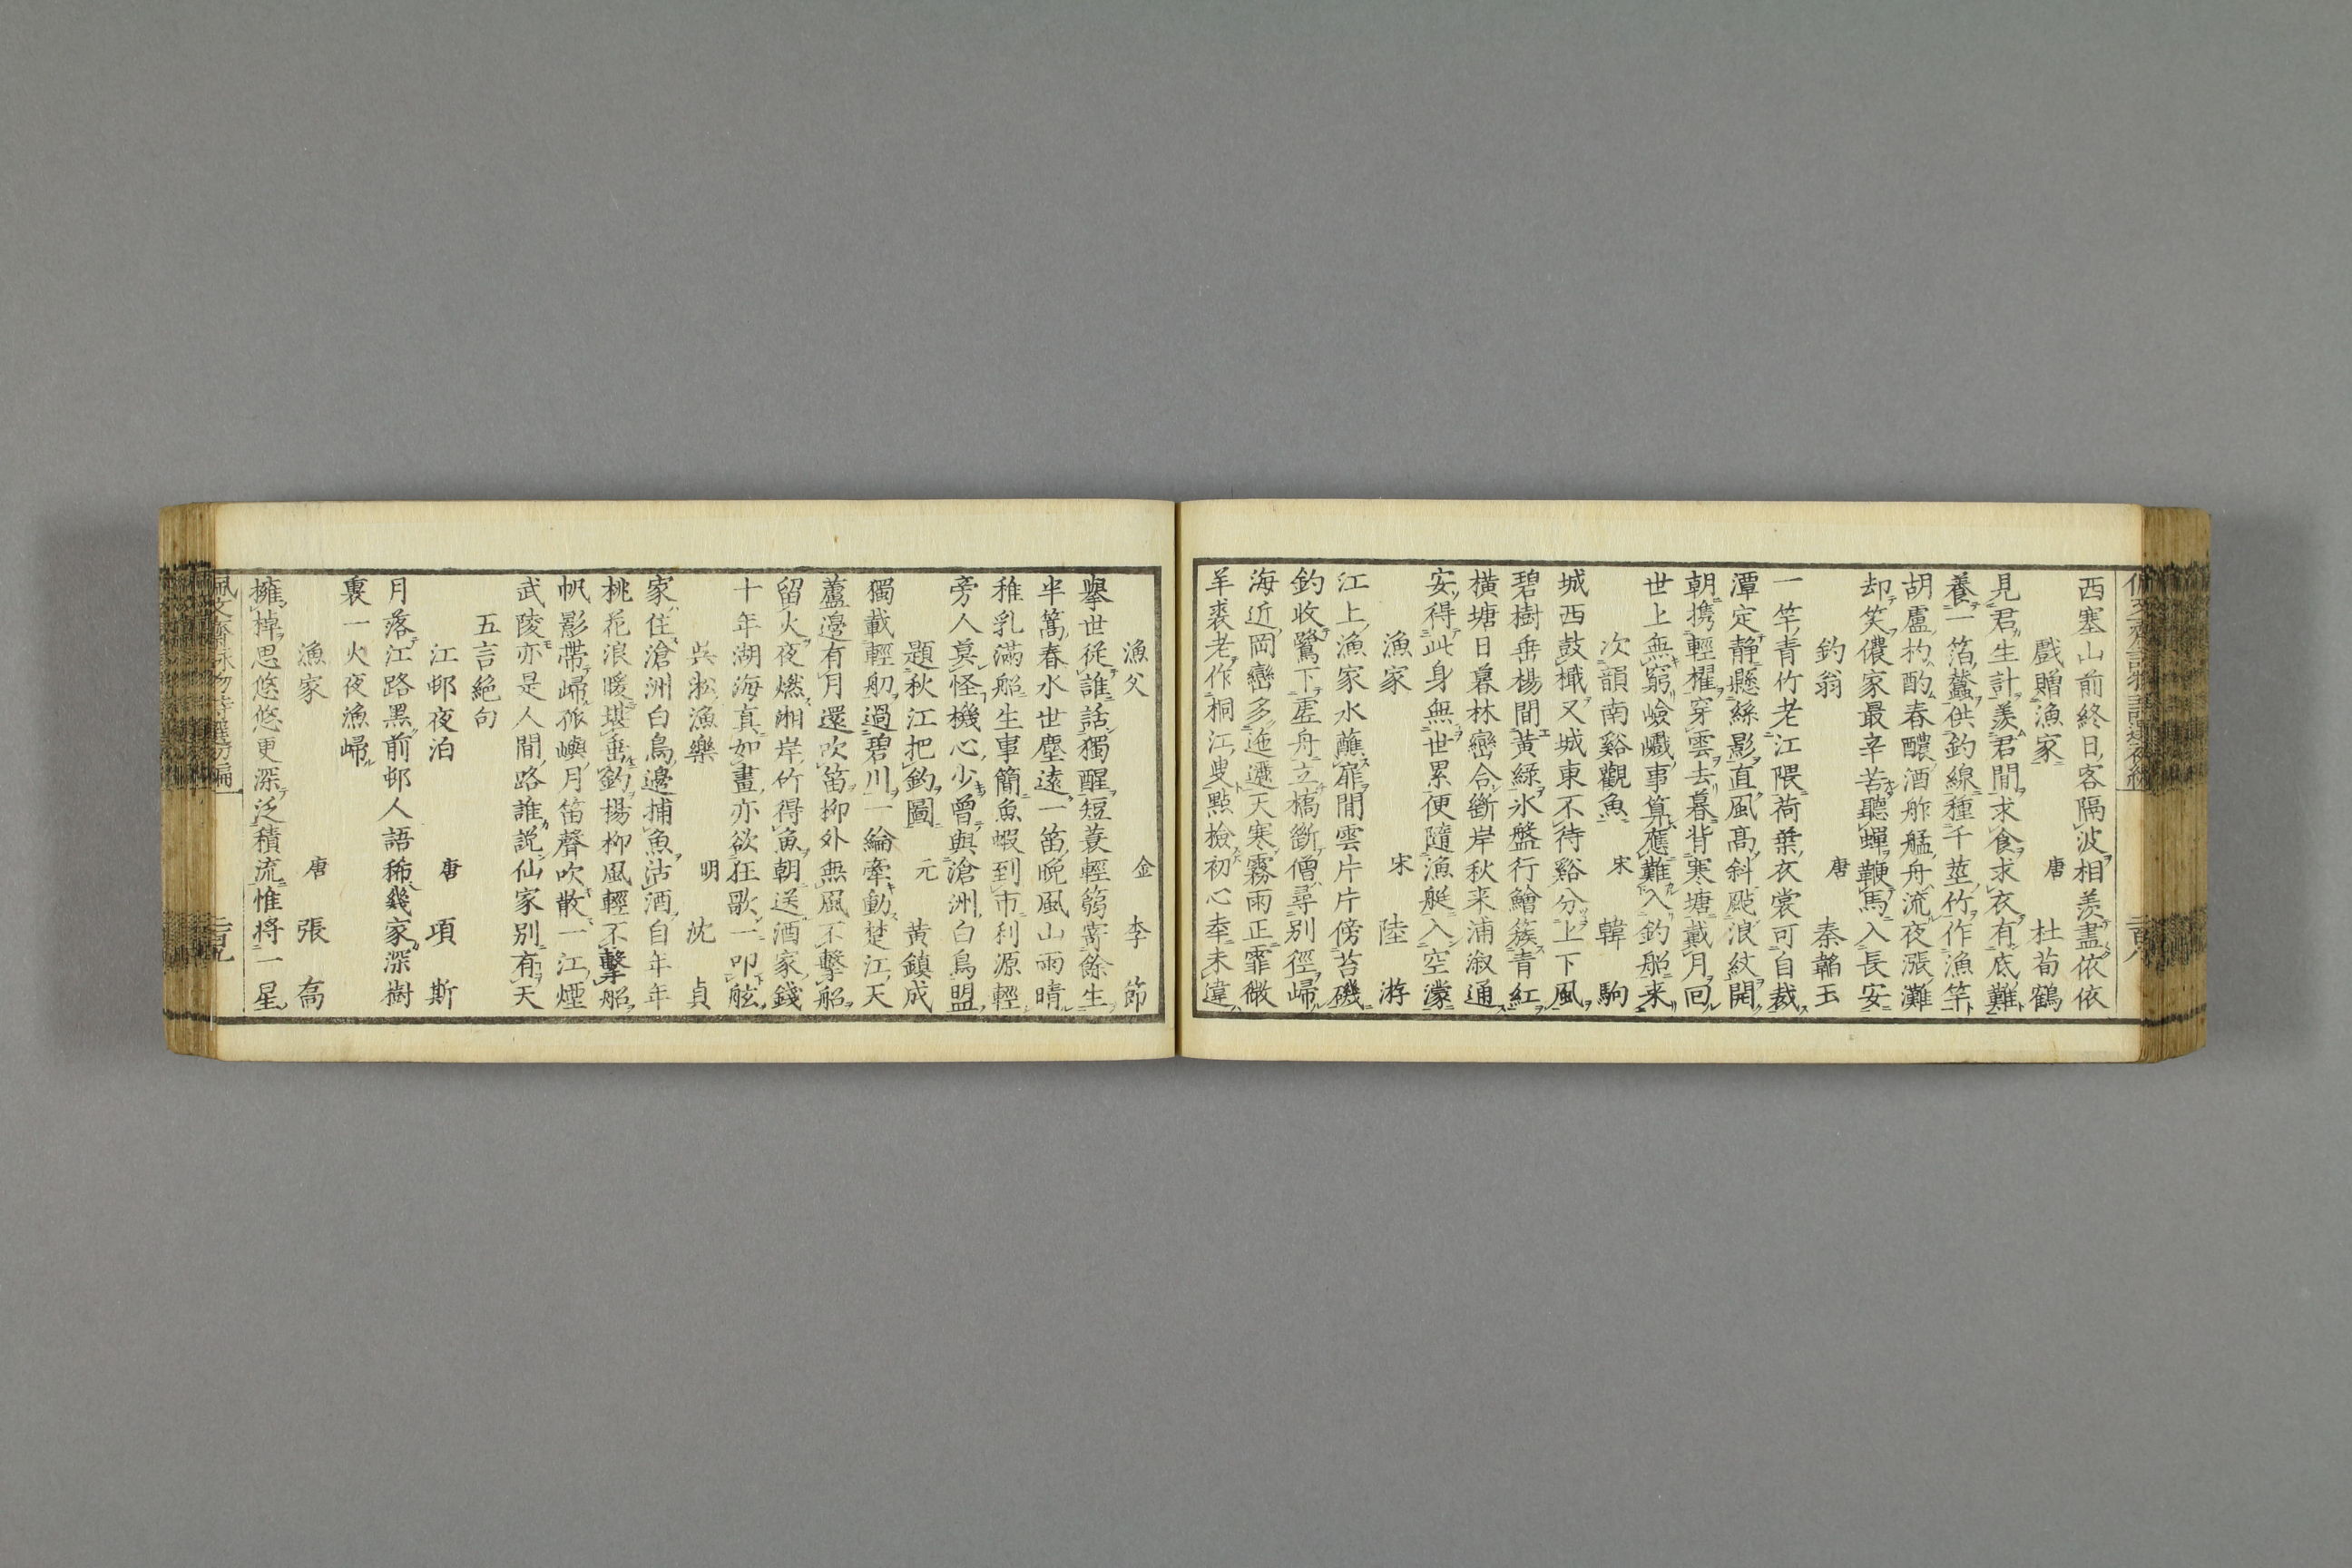 西塞山前終日客隔波相羨盡依依
戲贈漁家 唐 杜荀鶴
見君生計羨君閒求食求衣有底難
養一箔蠶供釣線種千莖竹作漁竿
胡盧杓酌春醲酒舴艋舟流夜漲灘
却笑儂家最辛苦聽蟬鞭馬入長安
釣翁 唐 秦韜玉
一竿青竹老江隈荷葉衣裳可自裁
潭定靜懸絲影直風髙斜颭浪紋開
朝携輕櫂穿雲去暮背寒塘戴月回
世上無窮嶮巇事算應難入釣船来
次韻南谿觀魚 宋 韓駒
城西鼓檝又城東不待谿分上下風
碧樹垂楊間黃緑氷盤行鱠簇青紅
橫塘日暮林巒合斷岸秋来浦溆通
安得此身無世累便隨漁艇入空濛
漁家 宋 陸游
江上漁家水蘸扉閒雲片片傍苔磯
釣收鷺下虚舟立橋斷僧尋別徑歸
海近岡巒多迤邐天寒霧雨正霏微
羊裘老作桐江叟點檢初心幸未違
漁父 金 李節
擧世従誰話獨醒短蓑輕篛寄餘生
半篙春水世塵遠一笛晩風山雨晴
稚乳滿船生事簡魚蝦到市利源輕
旁人莫怪機心少曽與滄洲白鳥盟
題秋江把釣圖 元 黃鎮成
獨載輕舠過碧川一綸牽動楚江天
蘆邉有月還吹笛柳外無風不繫船
留火夜燃湘岸竹得魚朝送酒家錢
十年湖海真如畫亦欲狂歌一叩舷
呉淞漁樂 明 沈貞
家住滄洲白鳥邉捕魚沽酒自年年
桃花浪暖堪垂釣楊柳風輕不繫船
帆影帶歸孤嶼月笛聲吹散一江煙
武陵亦是人間路誰説仙家別有天
五言絶句
江邨夜泊 唐 項斯
月落江路黑前邨人語稀幾家深樹
裏一火夜漁歸
漁家 唐 張喬
擁棹思悠悠更深泛積流惟將一星
佩文齋詠物詩選初編 二百九